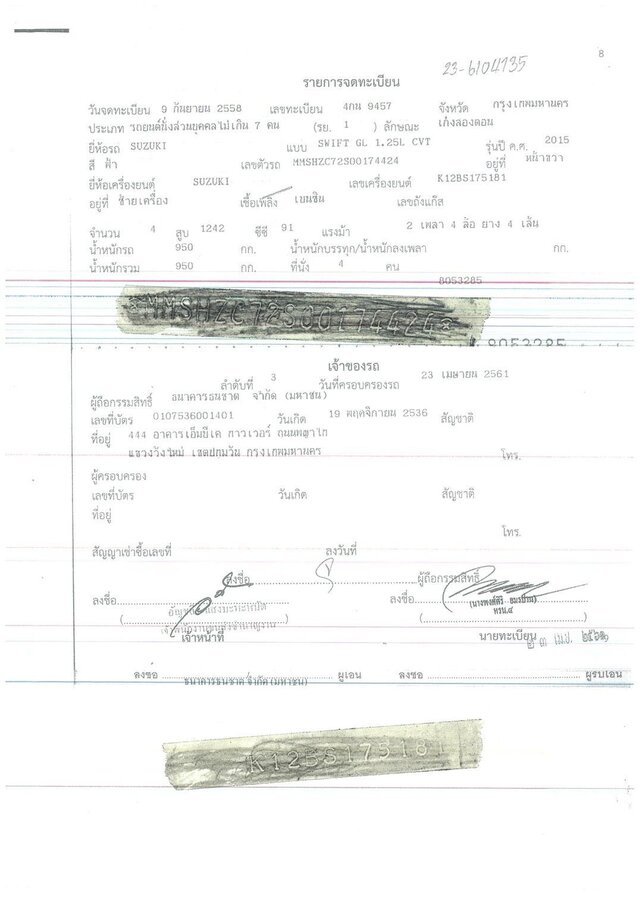 8
23-6104735
รายการจดทะเบียน
วันจดทะเบียน 9 กันยายน 2558 เลขทะเบียน 4กน 9457 จังหวัด กรุงเทพมหานคร
ประเภท รถยนต์นั่งส่วนบุคคลไม่เกิน 7 คน (รย. 1 ) ลักษณะ เก๋งสองตอน
ยี่ห้อรถ SUZUKI แบบ SWIFT GL 1.25L CVT รุ่นปี ค.ศ. 2015
สี ฟ้า เลขตัวรถ MMSHZC72S00174424 อยู่ที่ หน้าขวา
ยี่ห้อเครื่องยนต์ SUZUKI เลขเครื่องยนต์ K12BS175181
อยู่ที่ ซ้ายเครื่อง เชื้อเพลิง เบนซิน เลขถังแก๊ส
จำนวน 4 สูบ 1242 ซีซี 91 แรงม้า 2 เพลา 4 ล้อ ยาง 4 เส้น
น้ำหนักรถ 950 กก. น้ำหนักบรรทุก/น้ำหนักลงเพลา กก.
น้ำหนักรวม 950 กก. ที่นั่ง 4 คน
8053285
*MMSHZC72S00174424*
8053285
เจ้าของรถ
ลำดับที่ 3 วันที่ครอบครองรถ 23 เมษายน 2561
ผู้ถือกรรมสิทธิ์ ธนาคารธนชาต จำกัด (มหาชน)
เลขที่บัตร 0107536001401 วันเกิด 19 พฤศจิกายน 2536 สัญชาติ
ที่อยู่ 444 อาคารเอ็มบีเค ทาวเวอร์ ถนนพญาไท
แขวงวังใหม่ เขตปทุมวัน กรุงเทพมหานคร โทร.
ผู้ครอบครอง
เลขที่บัตร วันเกิด สัญชาติ
ที่อยู่
โทร.
สัญญาเช่าซื้อเลขที่ ลงวันที่
ลงชื่อ ผู้ถือกรรมสิทธิ์
ลงชื่อ ลงชื่อ
เจ้าหน้าที่ นายทะเบียน
๒๓ เม.ย. ๒๕๖๑
ลงชื่อ ธนาคารธนชาต จำกัด (มหาชน) ผู้โอน ลงชื่อ ผู้รับโอน
K12BS175181